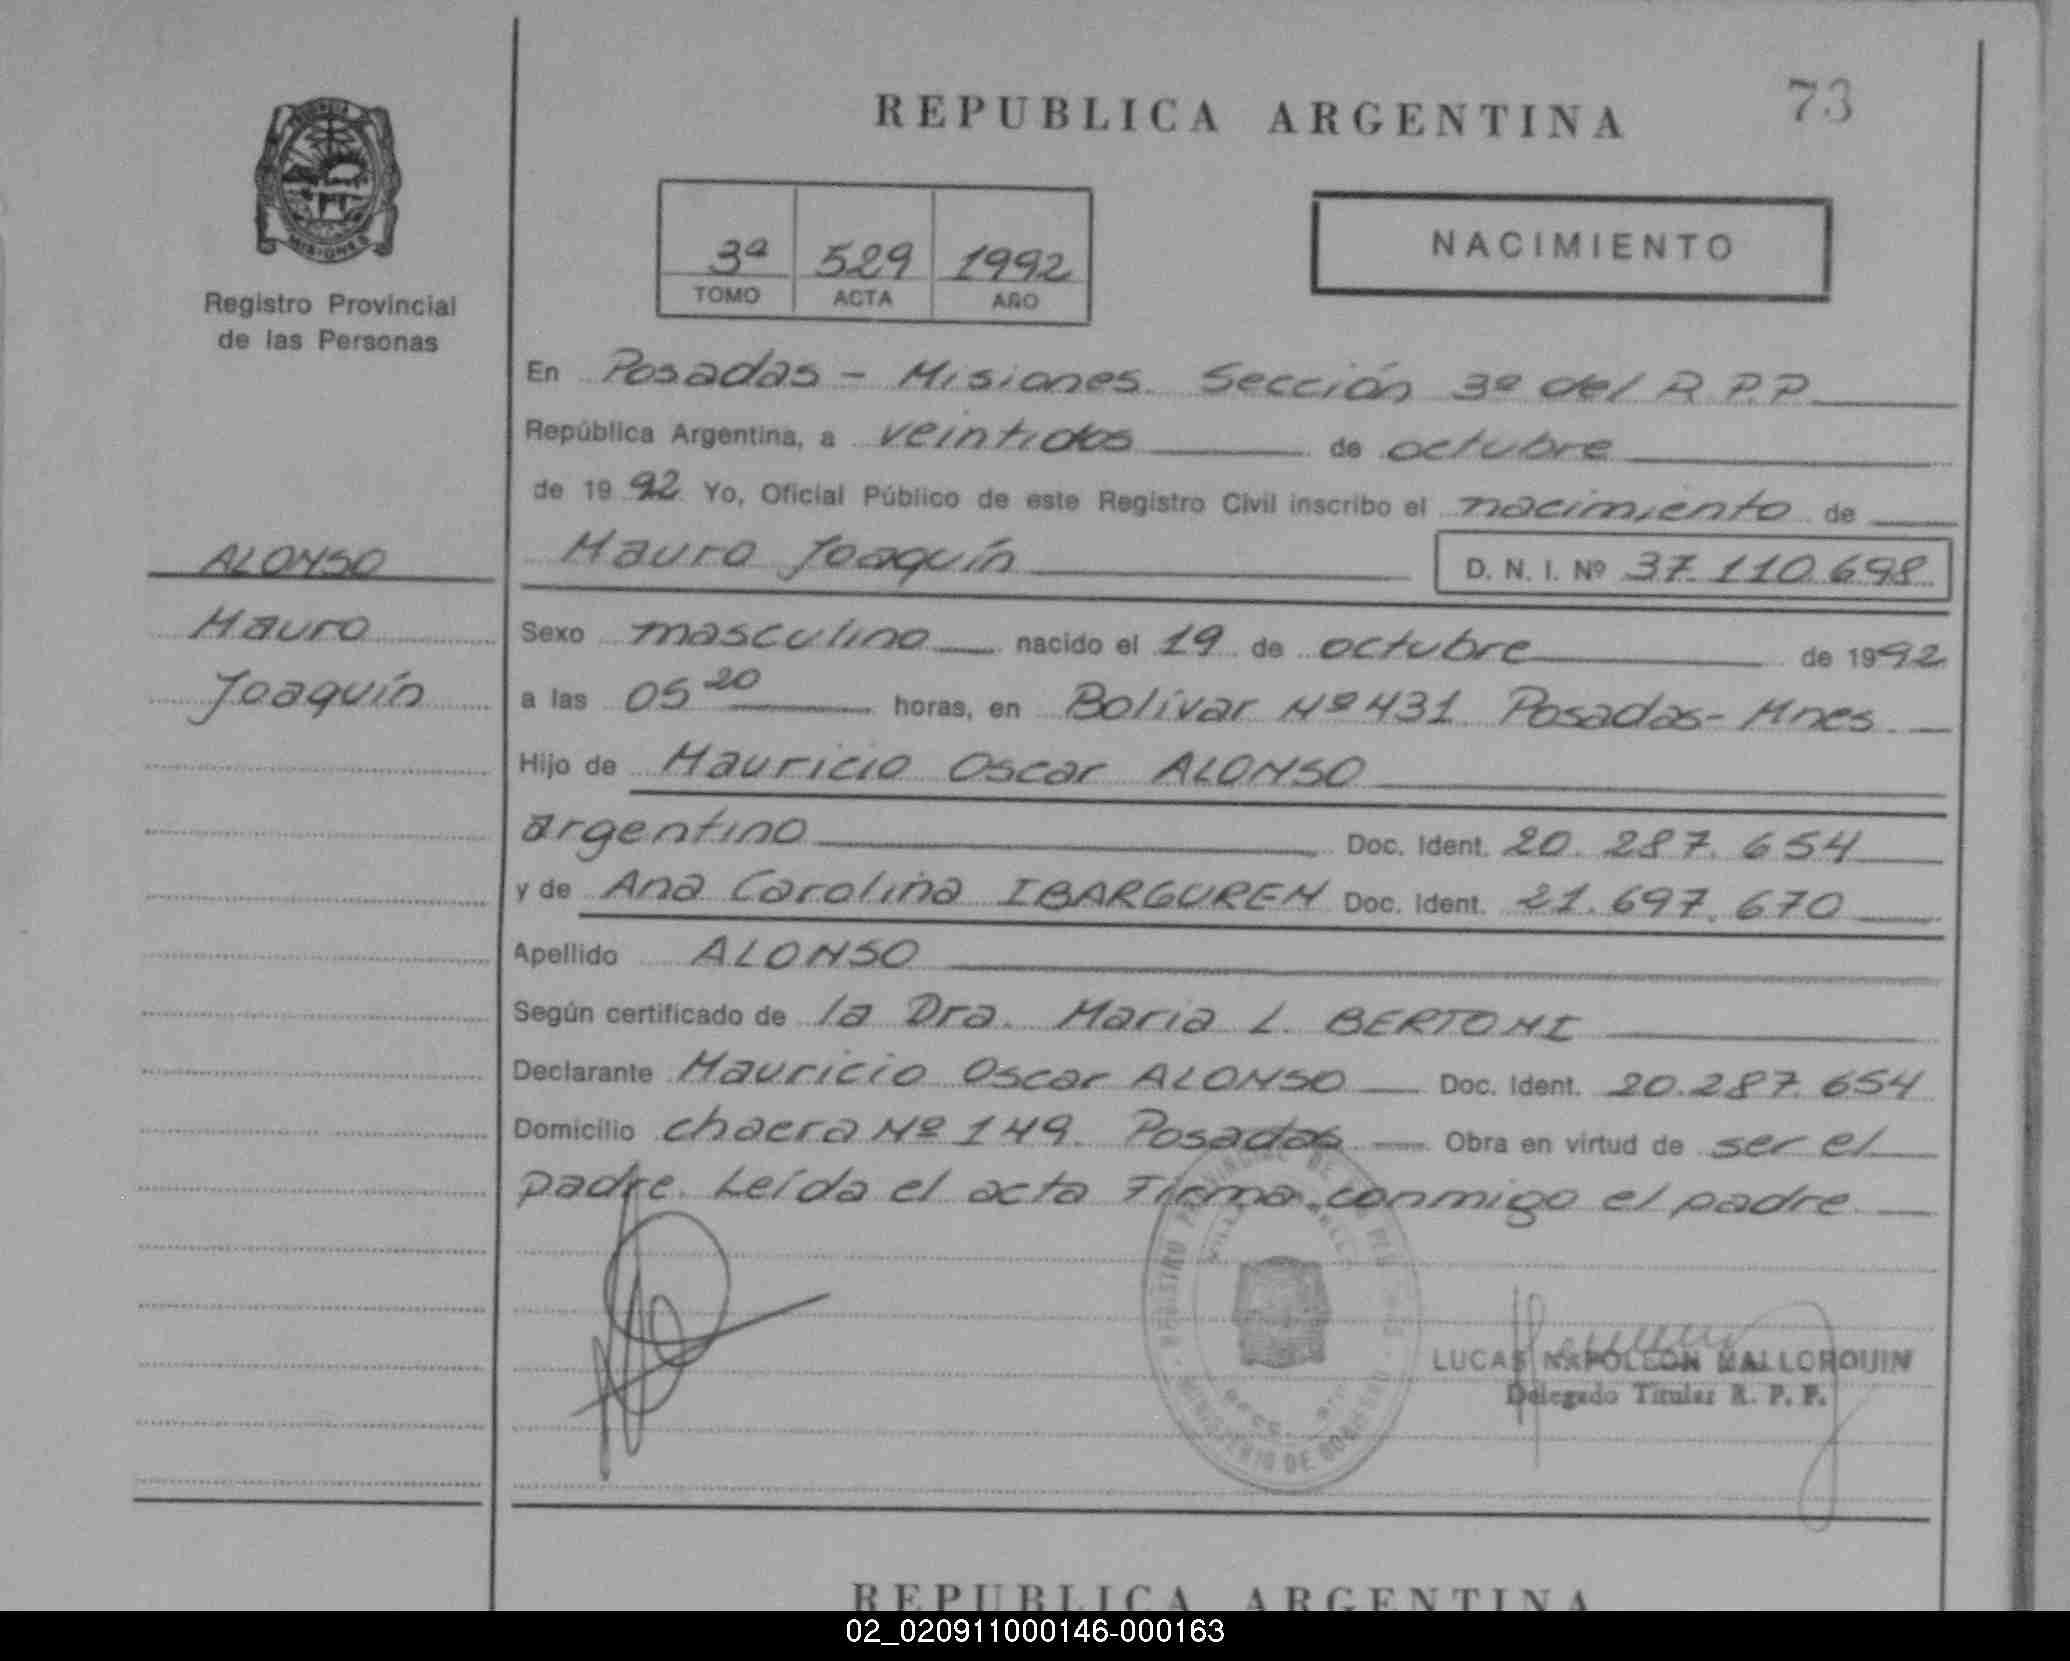 REPUBLICA ARGENTINA
73
MISIONES
Registro Provincial
de las Personas
3ª 529 1992
TOMO ACTA AÑO
NACIMIENTO
En Posadas - Misiones. Sección 3ª del R.P.P.
República Argentina, a veintidos de octubre
de 1992 Yo, Oficial Público de este Registro Civil inscribo el nacimiento de
Mauro Joaquín D. N. I. Nº 37.110.698
ALONSO
Mauro
Joaquín
Sexo masculino nacido el 19 de octubre de 1992
a las 05 20 horas, en Bolívar Nº 431 Posadas - Mnes.
Hijo de Mauricio Oscar ALONSO
argentino Doc. Ident. 20.287.654
y de Ana Carolina IBARGUREN Doc. Ident. 21.697.670
Apellido ALONSO
Según certificado de la Dra. Maria L. BERTONI
Declarante Mauricio Oscar ALONSO Doc. Ident. 20.287.654
Domicilio chacra Nº 149. Posadas Obra en virtud de ser el
padre. Leída el acta Firma conmigo el padre
LUCAS NAPOLEON MALLORQUIN
Delegado Titular R. P. P.
REPUBLICA ARGENTINA
02_020911000146-000163